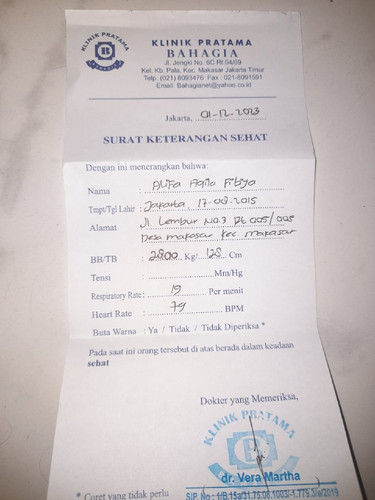 KLINIK PRATAMA
KLINIK PRATAMA
BAHAGIA
Jl. Jengki No. 6C Rt.04/09
Kel. Kb. Pala, Kec. Makasar Jakarta Timur
Telp. (021) 8093476 Fax : 021-8091591
Email: Bahagianet@yahoo.co.id
Jakarta, 01-12-2023
SURAT KETERANGAN SEHAT
Dengan ini menerangkan bahwa:
Nama : Alifa Aqila
Tmpt/Tgl Lahir : Jakarta, 17-08-2015
Alamat : Jl Lembur No.3 Rt 005/005
Desa makasar kec makasar
BB/TB : Kg/ 125 Cm
Tensi : Mm/Hg
Respiratory Rate : 19 Per menit
Heart Rate : 79 BPM
Buta Warna : Ya / Tidak / Tidak Diperiksa *
Pada saat ini orang tersebut di atas berada dalam keadaan
sehat
Dokter yang Memeriksa,
KLINIK PRATAMA
dr. Vera Martha
* Coret yang tidak perlu
SIP. No : 1/B.15a/31.75.08.1003/-1.779.3/e/2019